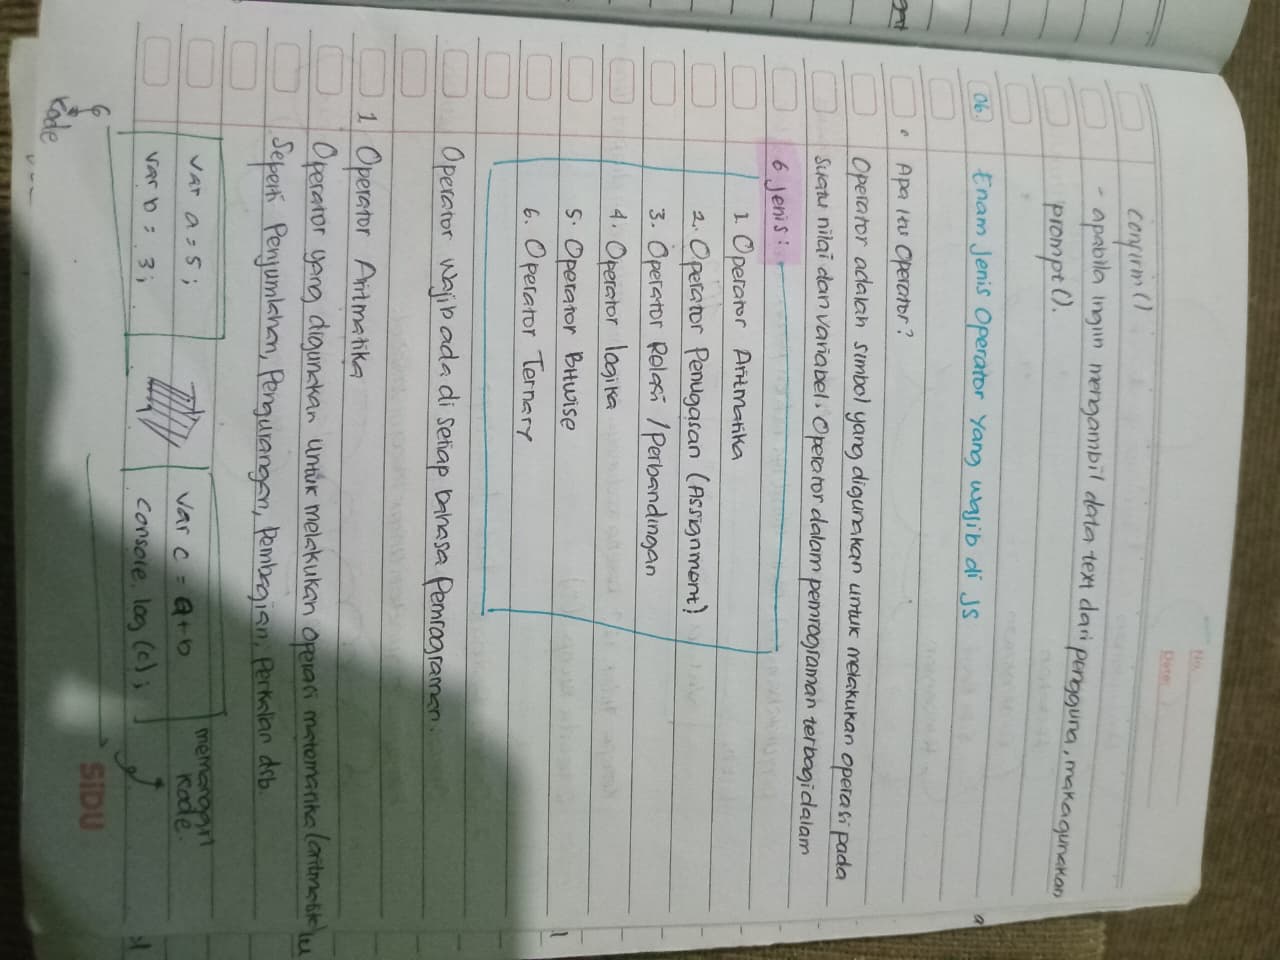 No.
Date:
confirm()
- apabila ingin mengambil data text dari pengguna, maka gunakan
prompt().
06. Enam Jenis Operator Yang wajib di JS
• Apa itu Operator?
Operator adalah simbol yang digunakan untuk melakukan operasi pada
suatu nilai dan variabel. Operator dalam pemrograman terbagi dalam
6 jenis :
1. Operator Aritmatika
2. Operator Penugasan (Assignment)
3. Operator Relasi / Perbandingan
4. Operator logika
5. Operator Bitwise
6. Operator Ternary
Operator wajib ada di setiap bahasa pemrograman.
1. Operator Aritmatika
Operator yang digunakan untuk melakukan operasi matematika
Seperti Penjumlahan, Pengurangan, Pembagian, Perkalian dsb.
var a = 5 ;
var b = 3 ;
var c = a + b
console.log (c) ;
memanggil
kode
kode
SiDU